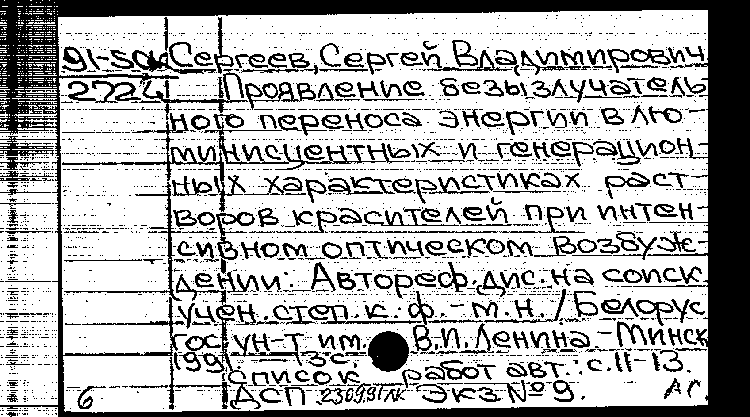 91-5 Сергеев, Сергей Владимирович
2724 Проявление безызлучатель
ного переноса энергии в лю-
минисцентных и генерацион-
ных характеристиках раст-
воров красителей при интен-
сивном оптическом возбуж-
дении: Автореф. дис. на соиск
учен. степ. к. ф. - м. н. / Белорус
гос ун-т им. В. И. Ленина. - Минск
1991 - 13 с.
список работ авт.: с. 11-13.
6 ДСП 230991 лк Экз № 9. АС